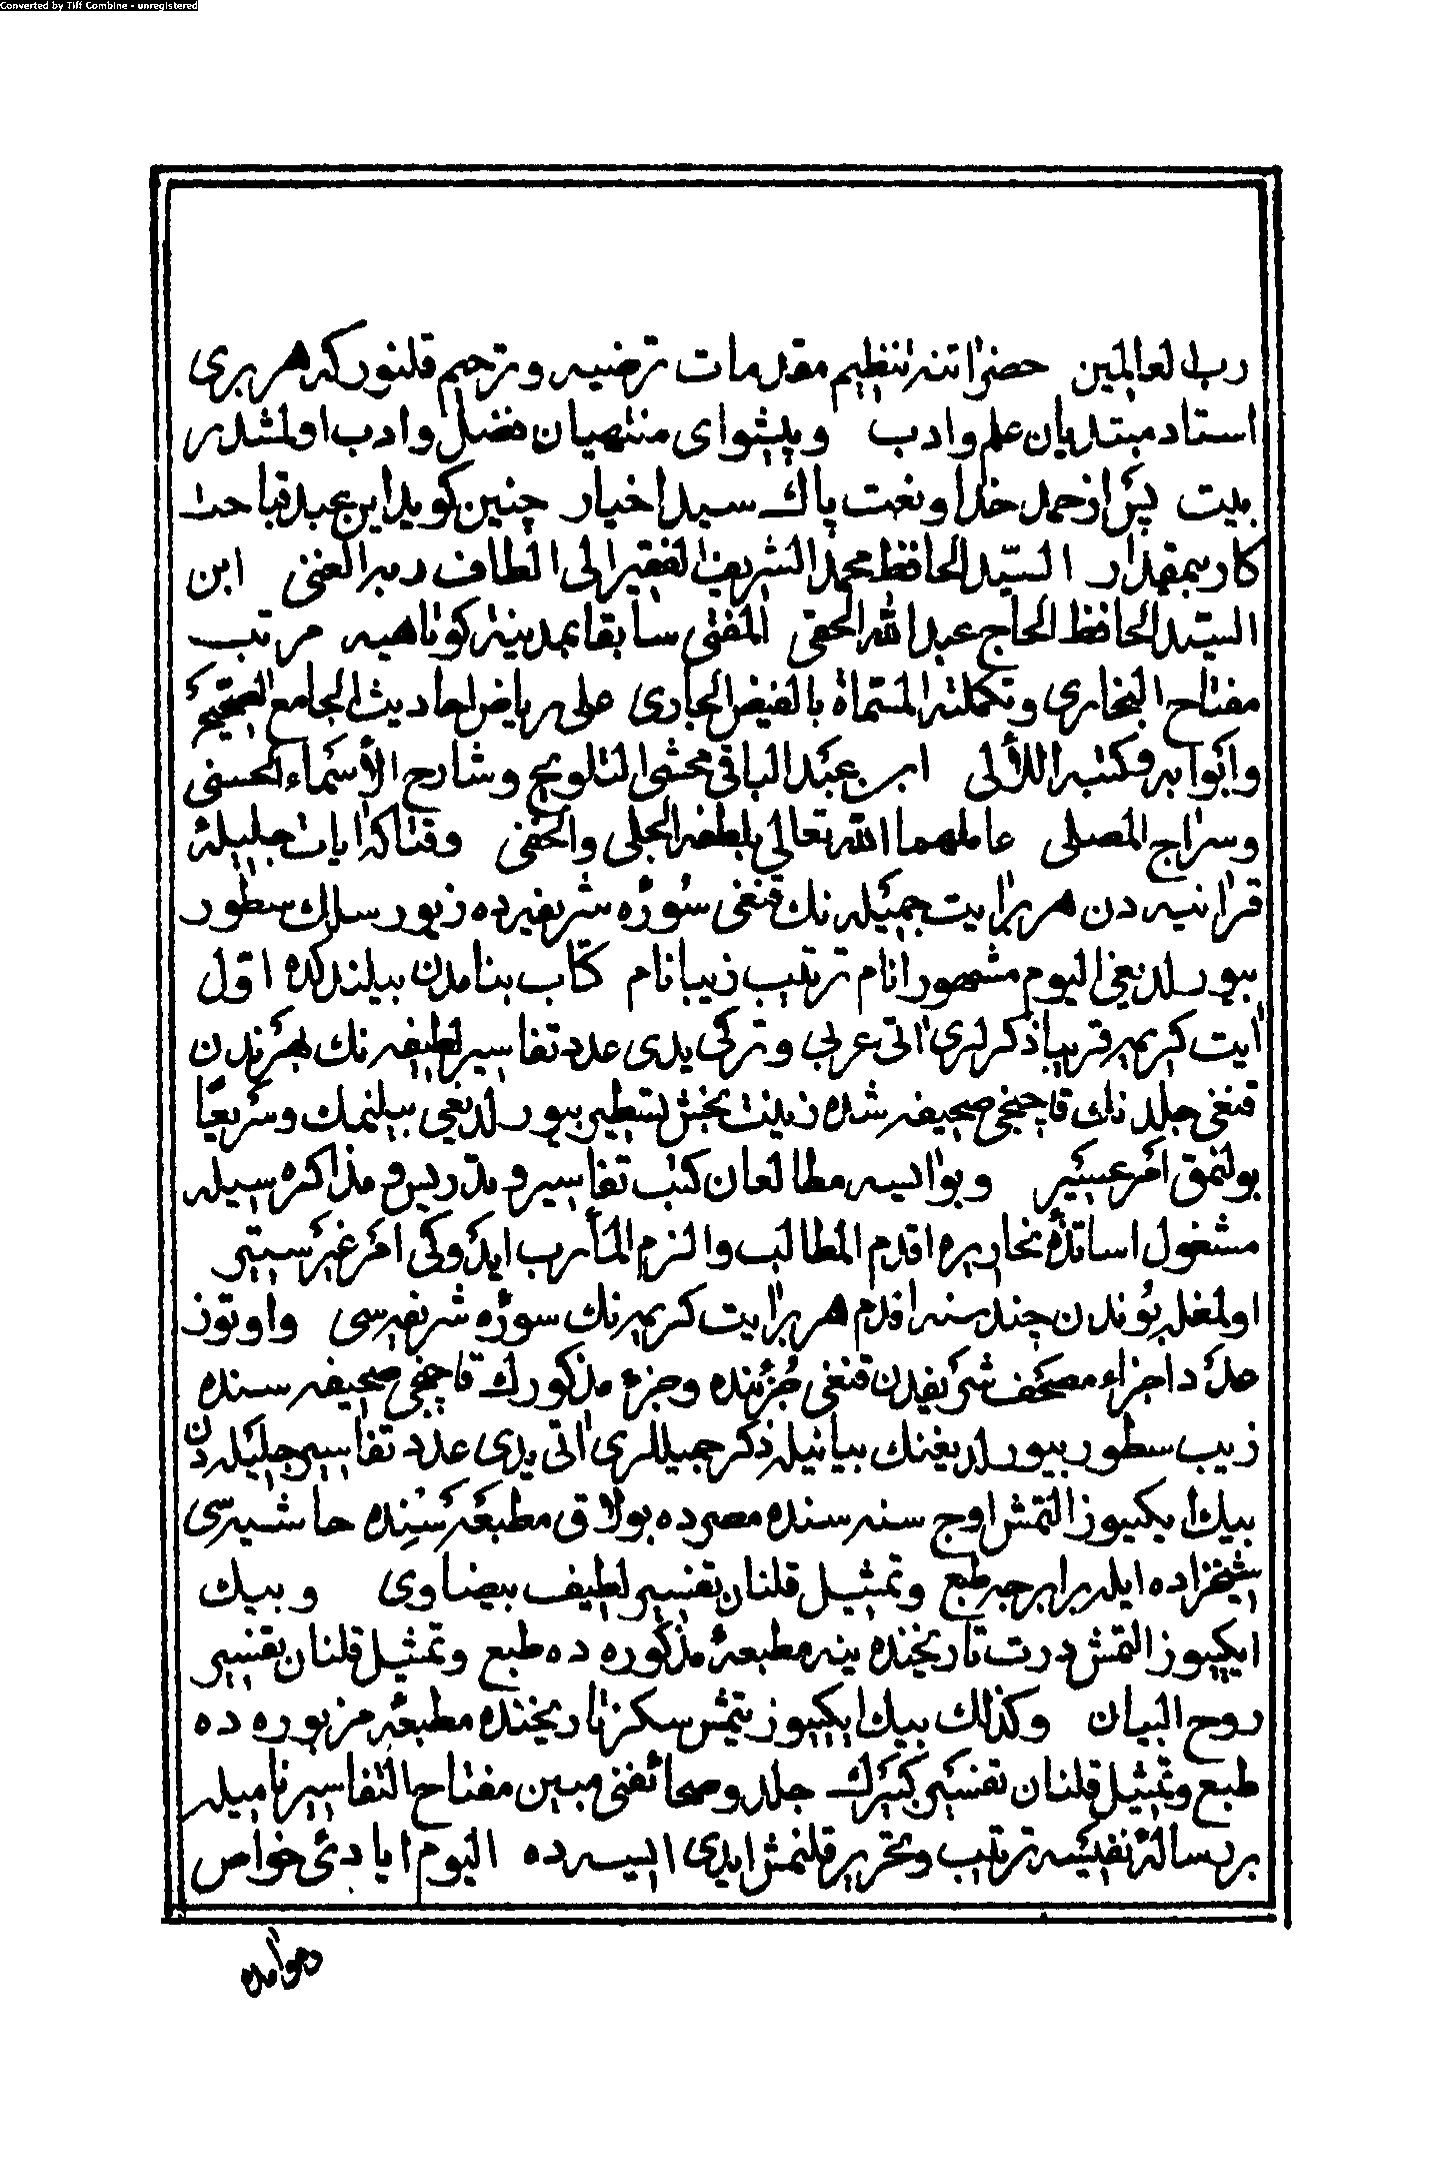 Converted by Tiff Combine - unregistered
رب العالمين حضراتنه تنظيم مقدمات ترضيه و ترحيم قلنور كه هر برى
استاد مبتديان علم و ادب و پيشواى منتهيان فضل و ادب اولمشدر
بيت پس از حمد خدا و نعت پاك سيد اخيار چنين كويد اين عبد قباحت
كار بيمقدار السيّد الحافظ محمد الشريف الفقير الى الطاف ربه الغنى ابن
السيّد الحافظ الحاج عبد الله الحقى المفتى سابقا بمدينة كوتاهيه مرتب
مفتاح البخارى و تكملته المسمّاة بالفيض الجارى على رياض احاديث الجامع الصحيح
و ابوابه و كتبه اللألى ابن عبد الباقى محشى التلويح و شارح الأسماء الحسنى
و سراج المصلى عاملهما الله تعالى بلطفه الجلى و الخفى و قتاكه ايات جليلهٔ
قرانيه دن هر بر ايت جميله نك قنغى سورهٔ شريفه ده زيور سلك سطور
بيورلديغى اليوم مشهور انام ترتيب زيبا نام كتاب بنامدن بيلندكده اول
ايت كريمه قريبا ذكرلرى اتى عربى و تركى يدى عدد تفاسير لطيفه نك هربرندن
قنغى جلدنك قاچنجى صحيفه سنده زينت بخش تسطير بيورلديغى بيلنمك و سريعا
بولنمق امر عسير و بو ايسه مطالعان كتب تفاسير و تدريس و مذاكره سيله
مشغول اساتذهٔ نحاريره اقدم المطالب و الزم المأرب ايدوكى امر غير ستير
اولمغله بوندن چند سنه اقدم هر بر ايت كريمه نك سورهٔ شريفه سى و اوتوز
عدد اجزاء مصحف شريفدن قنغى جزئنده و جزء مذكورك قاچنجى صحيفه سنده
زيب سطور بيورلديغنك بيانيله ذكر جميللرى اتى يدى عدد تفاسير جليله دن
بيك ايكيوز التمش اوچ سنه سنده مصرده بولاق مطبعه سنده حاشيه سى
شيخزاده ايله برابرجه طبع و تمثيل قلنان تفسير لطيف بيضاوى و بيك
ايكيوز التمش درت تاريخنده ينه مطبعهٔ مذكوره ده طبع و تمثيل قلنان تفسير
روح البيان و كذلك بيك ايكيوز يتمش سكز تاريخنده مطبعهٔ مزبوره ده
طبع و تمثيل قلنان تفسير كبيرك جلد و صحائفنى مبين مفتاح التفاسير ناميله
بر رسالهٔ نفيسه ترتيب و تحرير قلنمش ايدى ايسه ده اليوم ايادئ خواص